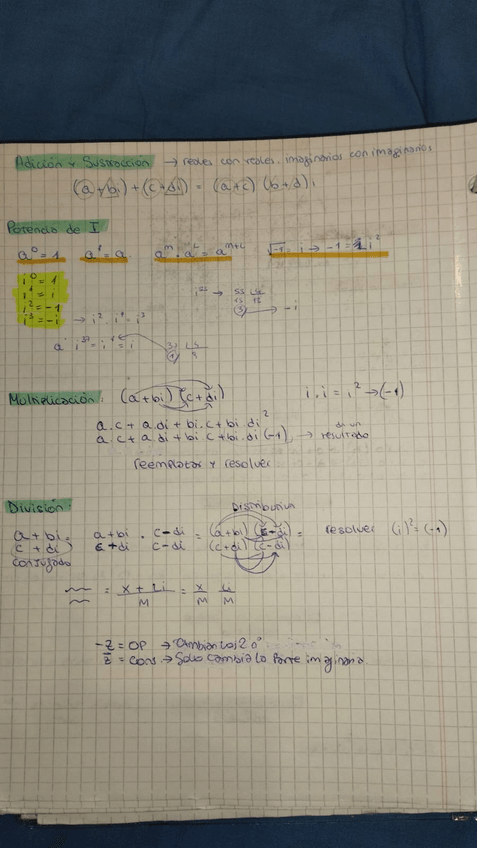 Adición y Sustracción → reales con reales, imaginarios con imaginarios
(a+bi)+(c+di) = (a+c) (b+d)i
Potencia de I
a⁰=1 a¹=a aᵐ · aᴸ = aᵐ⁺ᴸ √-1 = i → -1 = i²
i⁰ = 1
i¹ = i
i² = -1
i³ = -i → i² . i¹ = i³
i⁵⁵ → 55 | 4
15 13
3 → -i
a i³⁷ = i¹ = i
Multiplicación: (a+bi) (c+di) i . i = i² → (-1)
a.c + a.di + bi.c + bi.di²
a.c + a.di + bi.c + bi.di (-1) → resultado
reemplazar y resolver
División: Distributiva
a+bi = a+bi . c-di = (a+bi) (c-di) = resolver (i)² = (-1)
c+di c+di c-di (c+di) (c-di)
conjugado
= x + Li = x Li
M M M
-Z = OP → Cambian los 2
z̄ = Cons → Solo cambia la parte imaginaria